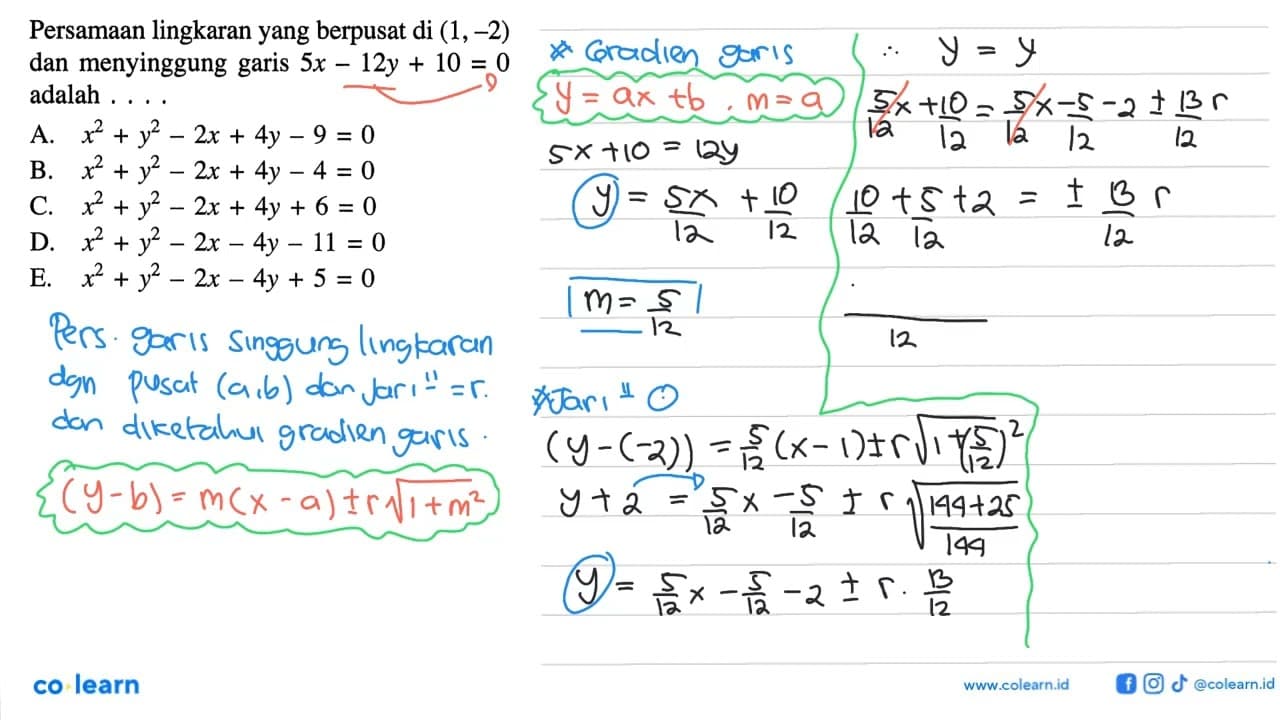 Persamaan lingkaran yang berpusat di (1, –2)
dan menyinggung garis 5x – 12y + 10 = 0
adalah . . . .
A. x² + y² – 2x + 4y – 9 = 0
B. x² + y² – 2x + 4y – 4 = 0
C. x² + y² – 2x + 4y + 6 = 0
D. x² + y² – 2x – 4y – 11 = 0
E. x² + y² – 2x – 4y + 5 = 0
Pers. garis singgung lingkaran
dgn pusat (a,b) dan Jari" = r.
dan diketahui gradien garis.
(y-b) = m(x-a) ± r√(1+m²)
* Gradien garis
y = ax + b , m = a
5x + 10 = 12y
y = 5x/12 + 10/12
m = 5/12
* Jari"
(y-(-2)) = 5/12 (x-1) ± r√(1+(5/12)²)
y + 2 = 5/12 x - 5/12 ± r √((144+25)/144)
y = 5/12 x - 5/12 - 2 ± r . 13/12
∴ y = y
5/12 x + 10/12 = 5/12 x - 5/12 - 2 ± 13/12 r
10/12 + 5/12 + 2 = ± 13/12 r
12
co learn
www.colearn.id @colearn.id